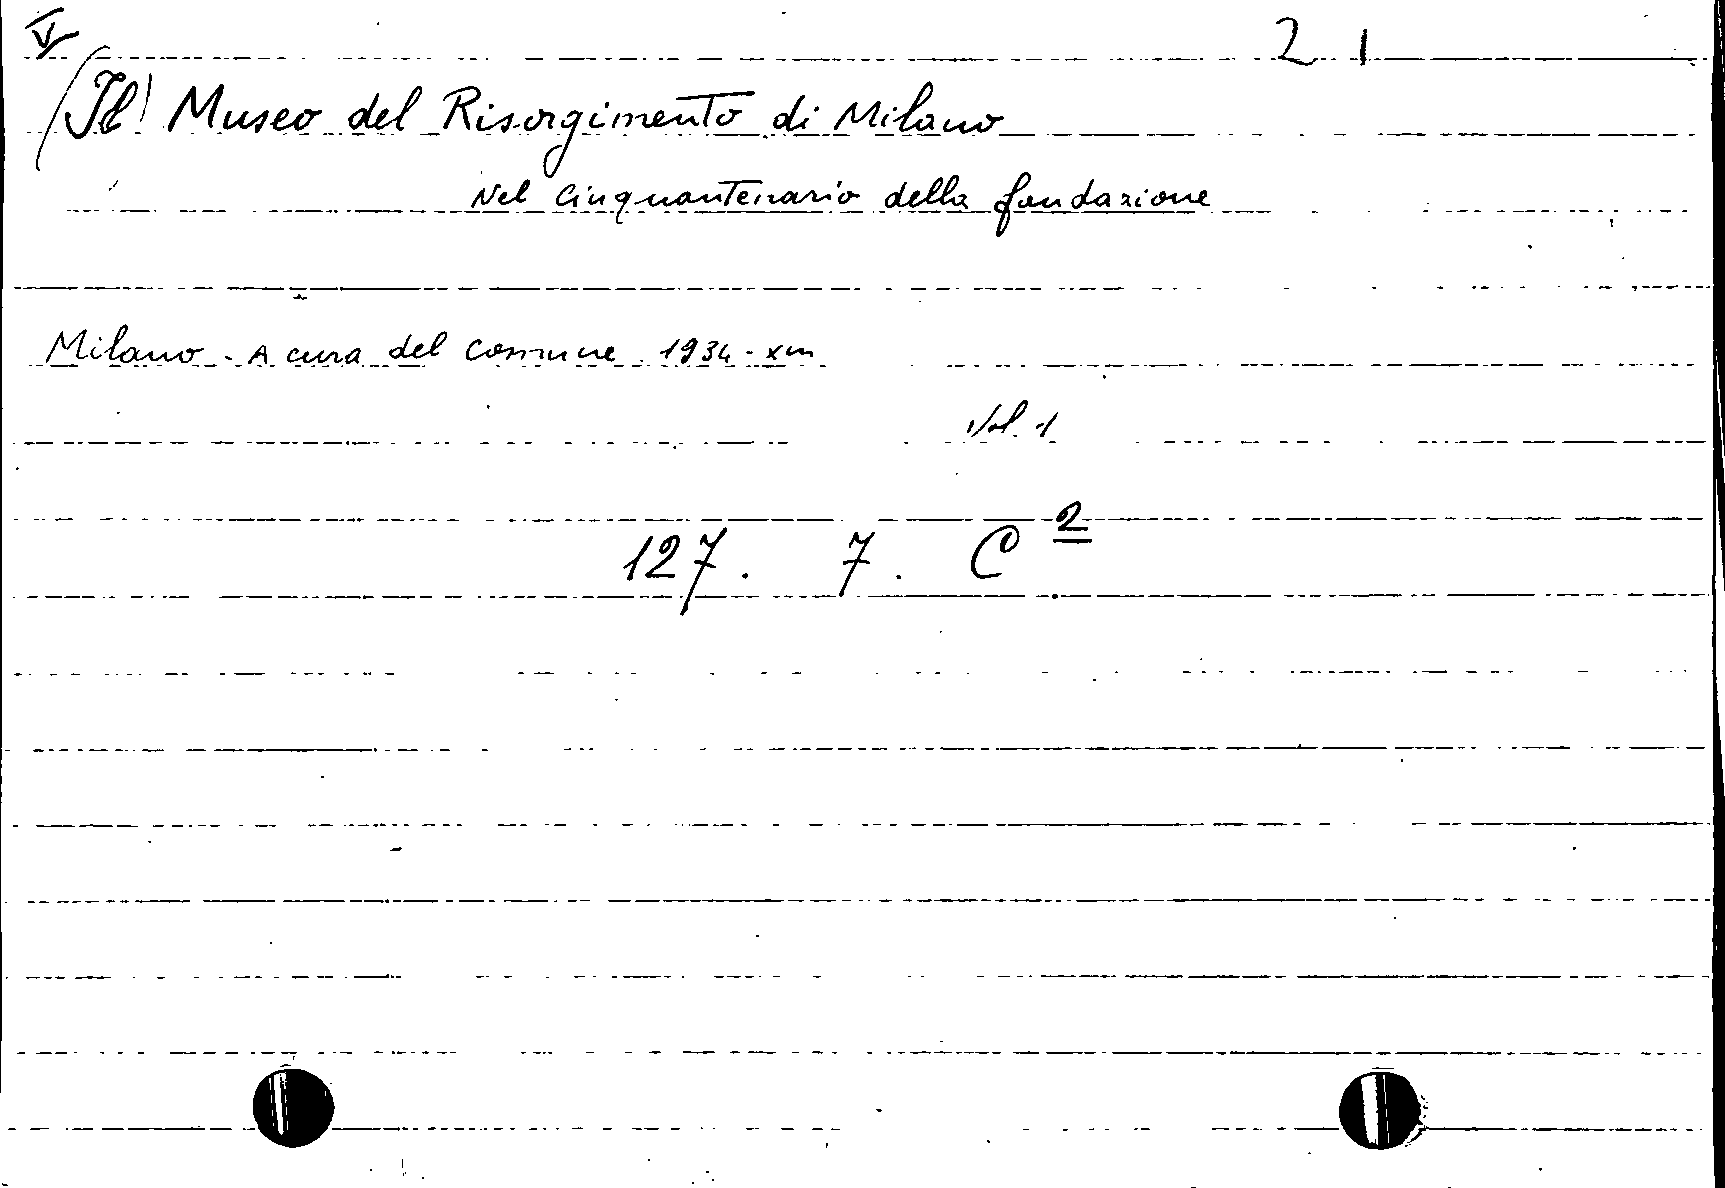 V
2 1
(Il) Museo del Risorgimento di Milano
Nel Cinquantenario della fondazione
Milano - A cura del Comune. 1934 - XIII
Vol. 1
127. 7. C 2